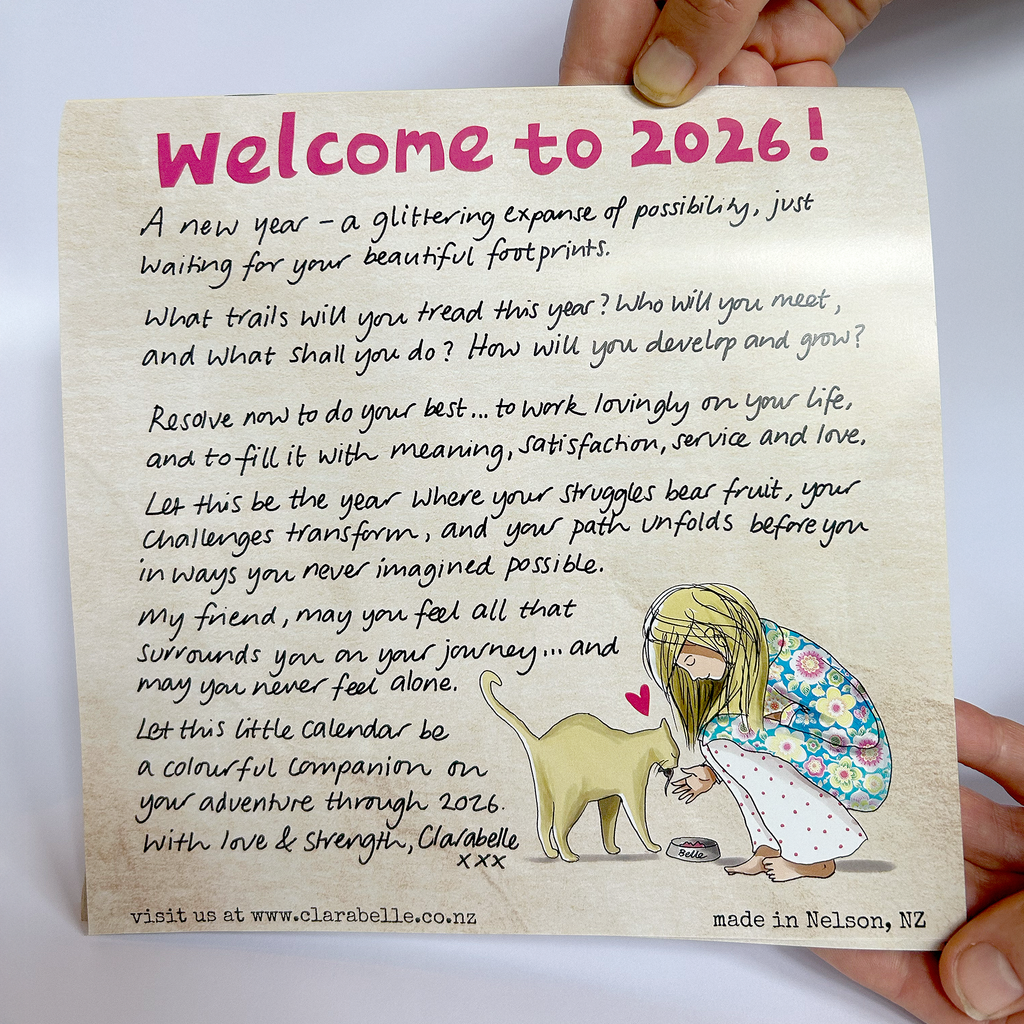 Welcome to 2026!
A new year – a glittering expanse of possibility, just
waiting for your beautiful footprints.
What trails will you tread this year? Who will you meet,
and what shall you do? How will you develop and grow?
Resolve now to do your best... to work lovingly on your life,
and to fill it with meaning, satisfaction, service and love.
Let this be the year where your struggles bear fruit, your
challenges transform, and your path unfolds before you
in ways you never imagined possible.
My friend, may you feel all that
surrounds you on your journey... and
may you never feel alone.
Let this little calendar be
a colourful companion on
your adventure through 2026.
With love & strength, Clarabelle
xxx
Belle
visit us at www.clarabelle.co.nz
made in Nelson, NZ